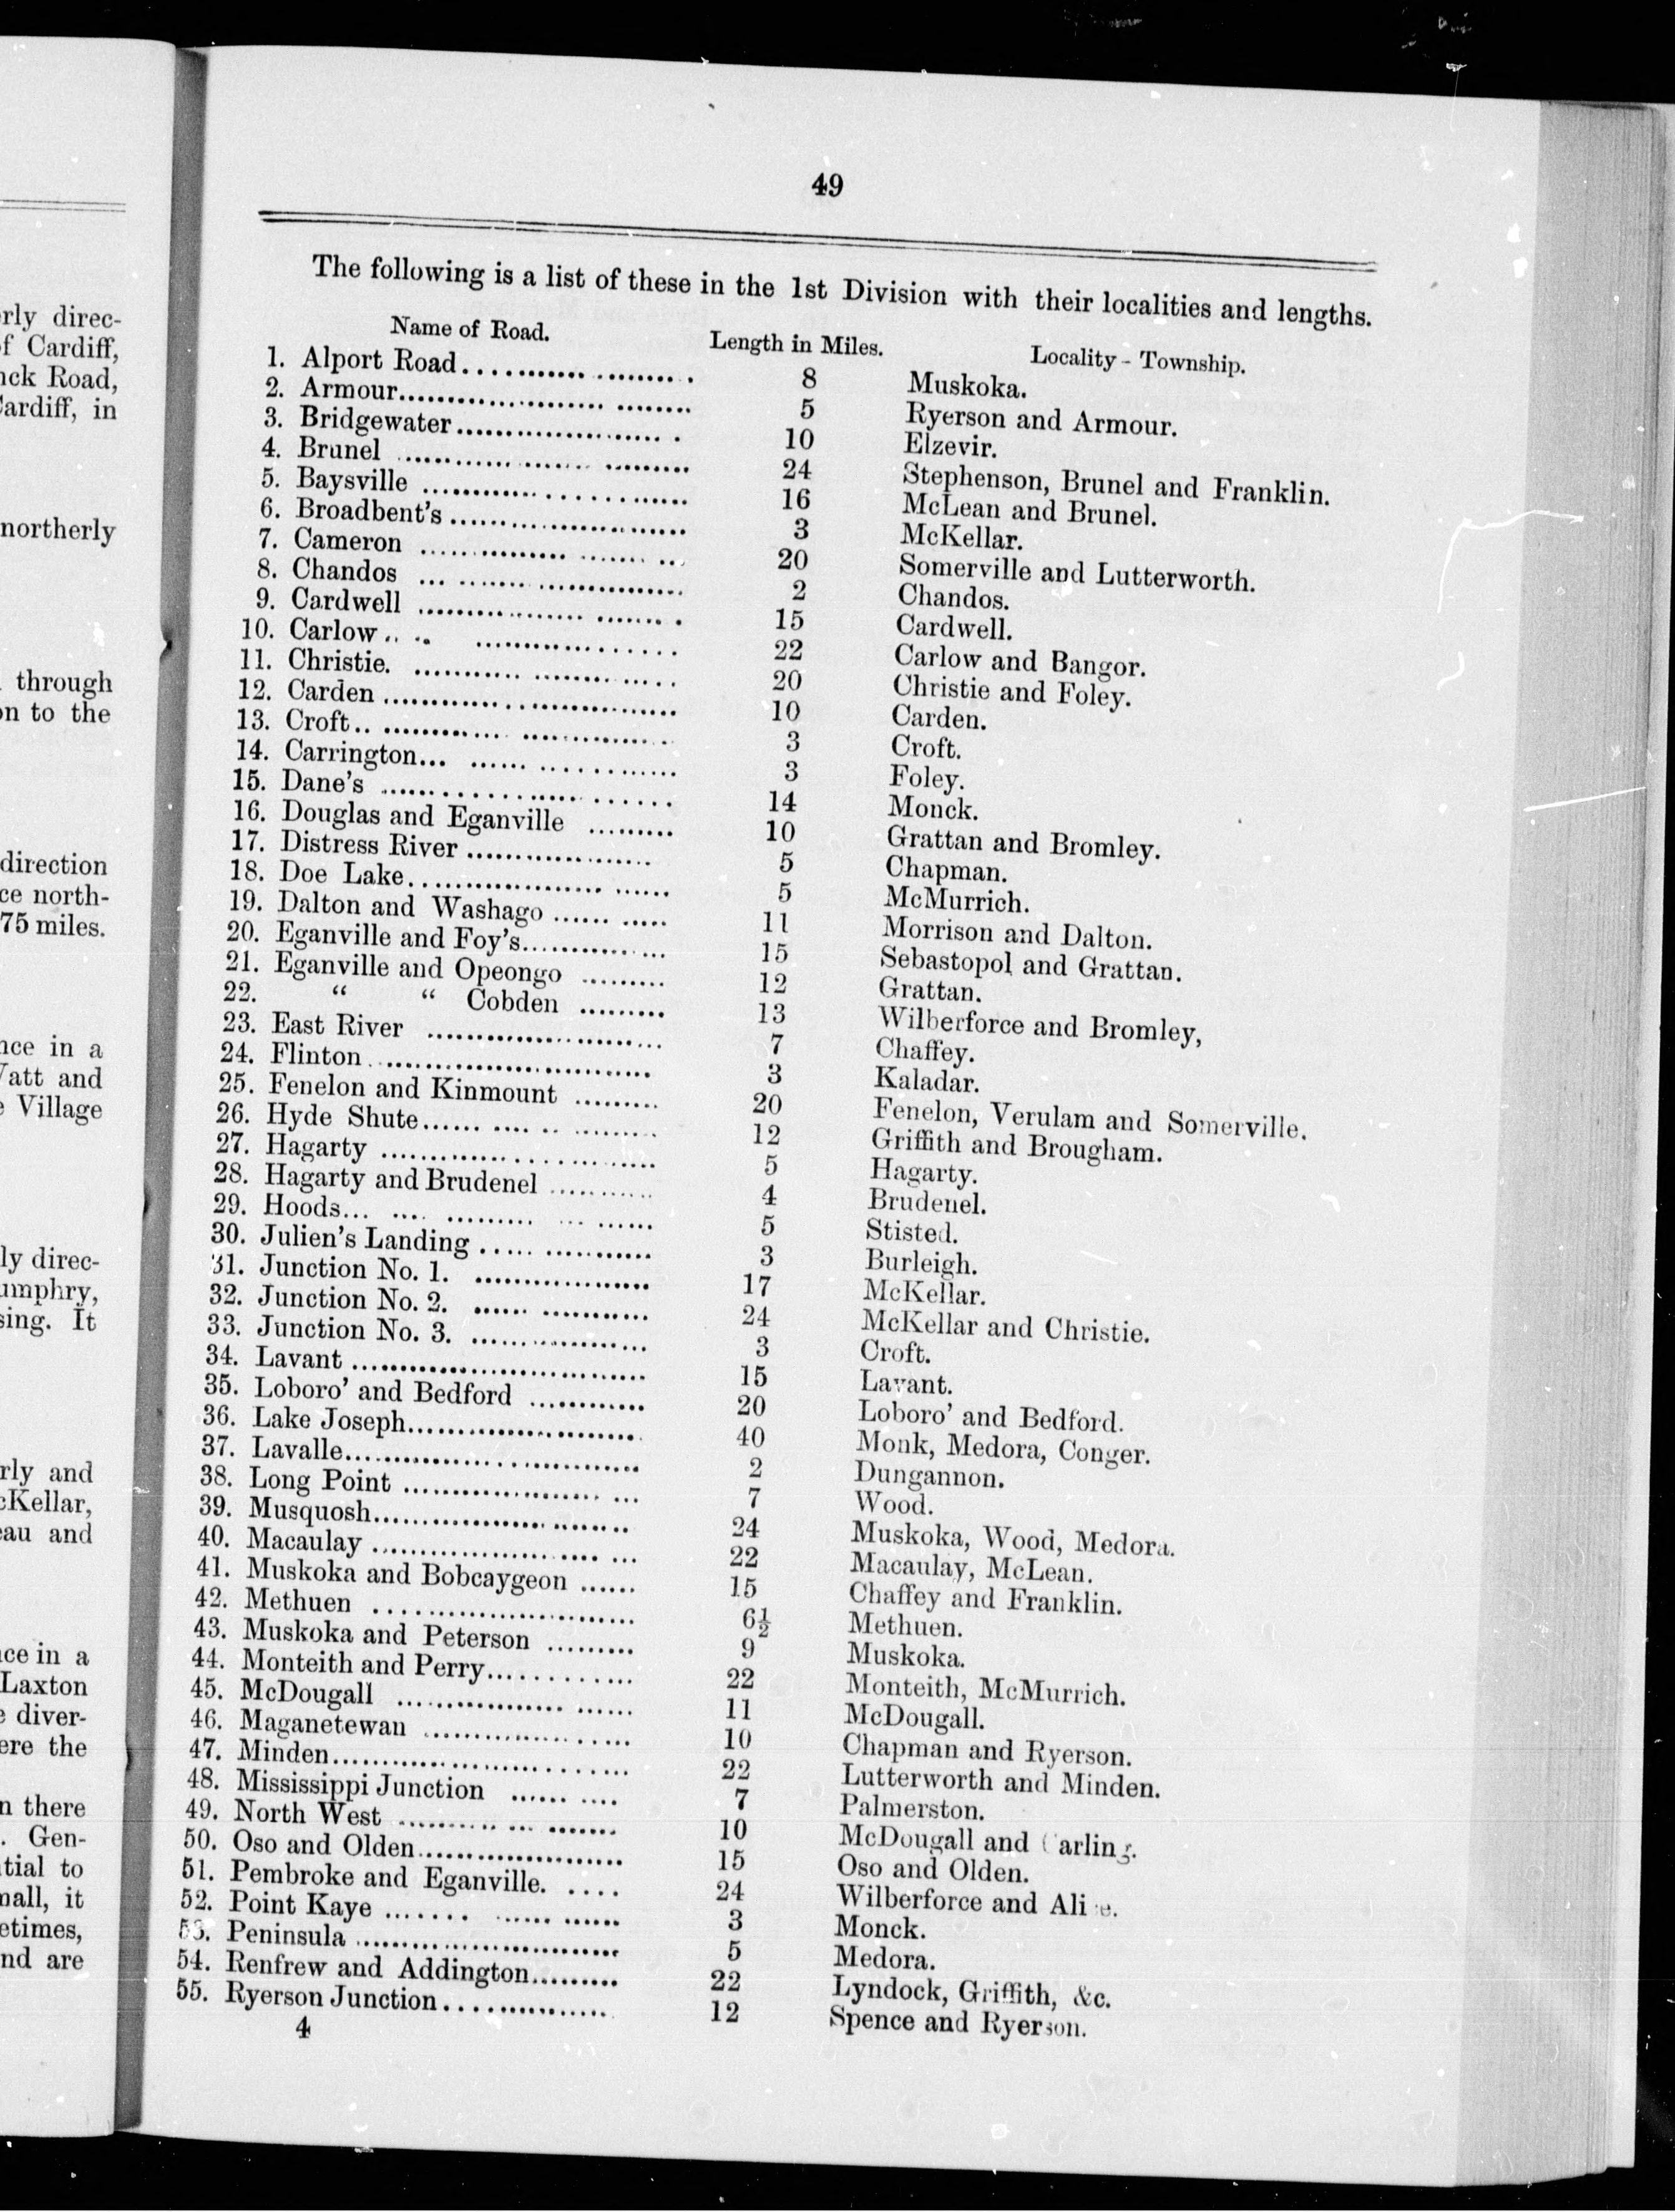 49
The following is a list of these in the 1st Division with their localities and lengths.
Name of Road. Length in Miles. Locality - Township.
1. Alport Road 8 Muskoka.
2. Armour 5 Ryerson and Armour.
3. Bridgewater 10 Elzevir.
4. Brunel 24 Stephenson, Brunel and Franklin.
5. Baysville 16 McLean and Brunel.
6. Broadbent's 3 McKellar.
7. Cameron 20 Somerville and Lutterworth.
8. Chandos 2 Chandos.
9. Cardwell 15 Cardwell.
10. Carlow 22 Carlow and Bangor.
11. Christie. 20 Christie and Foley.
12. Carden 10 Carden.
13. Croft 3 Croft.
14. Carrington 3 Foley.
15. Dane's 14 Monck.
16. Douglas and Eganville 10 Grattan and Bromley.
17. Distress River 5 Chapman.
18. Doe Lake 5 McMurrich.
19. Dalton and Washago 11 Morrison and Dalton.
20. Eganville and Foy's 15 Sebastopol and Grattan.
21. Eganville and Opeongo 12 Grattan.
22. " " Cobden 13 Wilberforce and Bromley,
23. East River 7 Chaffey.
24. Flinton 3 Kaladar.
25. Fenelon and Kinmount 20 Fenelon, Verulam and Somerville.
26. Hyde Shute 12 Griffith and Brougham.
27. Hagarty 5 Hagarty.
28. Hagarty and Brudenel 4 Brudenel.
29. Hoods 5 Stisted.
30. Julien's Landing 3 Burleigh.
31. Junction No. 1. 17 McKellar.
32. Junction No. 2. 24 McKellar and Christie.
33. Junction No. 3. 3 Croft.
34. Lavant 15 Lavant.
35. Loboro' and Bedford 20 Loboro' and Bedford.
36. Lake Joseph 40 Monk, Medora, Conger.
37. Lavalle 2 Dungannon.
38. Long Point 7 Wood.
39. Musquosh 24 Muskoka, Wood, Medora.
40. Macaulay 22 Macaulay, McLean.
41. Muskoka and Bobcaygeon 15 Chaffey and Franklin.
42. Methuen 6½ Methuen.
43. Muskoka and Peterson 9 Muskoka.
44. Monteith and Perry 22 Monteith, McMurrich.
45. McDougall 11 McDougall.
46. Maganetewan 10 Chapman and Ryerson.
47. Minden 22 Lutterworth and Minden.
48. Mississippi Junction 7 Palmerston.
49. North West 10 McDougall and Carling.
50. Oso and Olden 15 Oso and Olden.
51. Pembroke and Eganville. 24 Wilberforce and
52. Point Kaye 3 Monck.
53. Peninsula 5 Medora.
54. Renfrew and Addington 22 Lyndock, Griffith, &c.
55. Ryerson Junction 12 Spence and Ryerson.
4